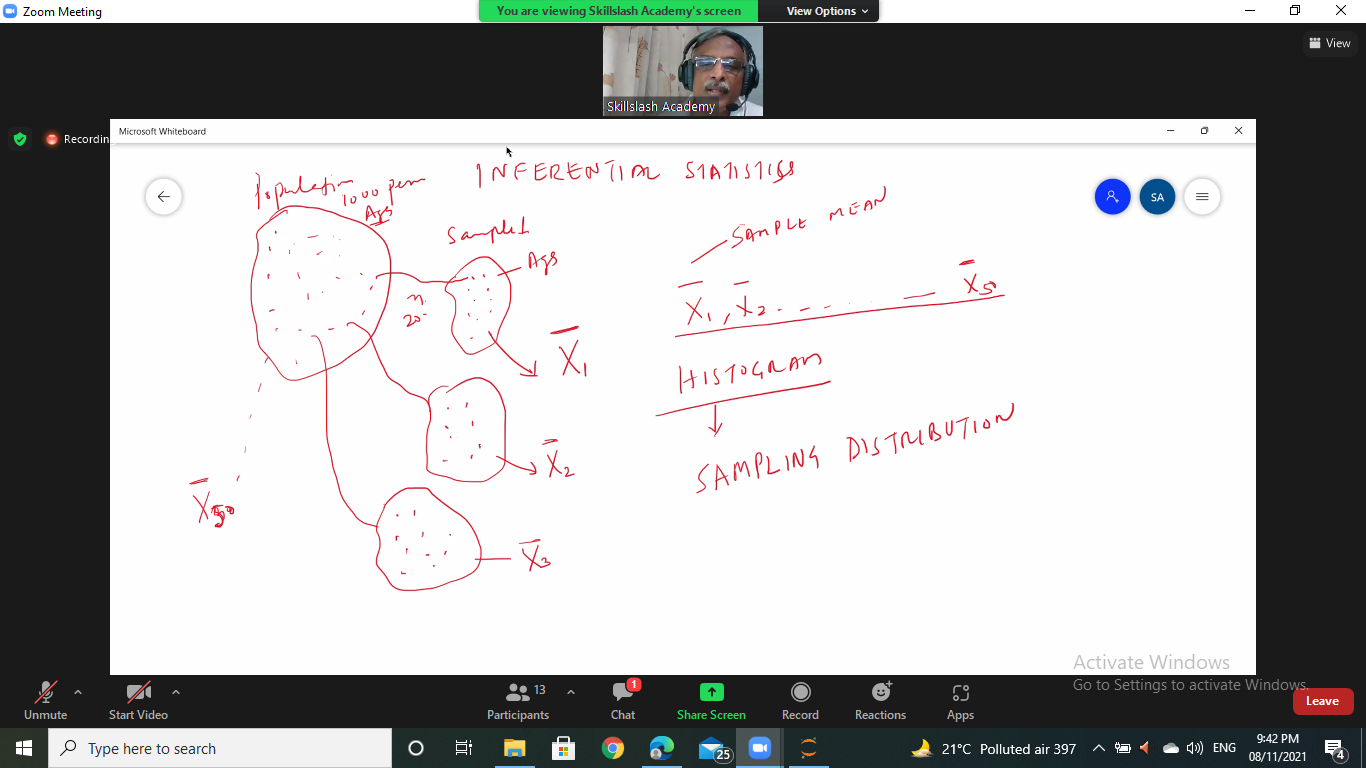 Zoom Meeting
You are viewing Skillslash Academy's screen
View Options
View
Skillslash Academy
Recording
Microsoft Whiteboard
INFERENTIAL STATISTICS
Population
1000
Age
SA
Sample1
Age
SAMPLE MEAN
n
20
X̄1
X̄1, X̄2 - - - - - X̄50
HISTOGRAM
SAMPLING DISTRIBUTION
X̄2
X̄50
X̄3
Activate Windows
Go to Settings to activate Windows.
Unmute
Start Video
13
Participants
1
Chat
Share Screen
Record
Reactions
Apps
Leave
Type here to search
25
21°C Polluted air 397
ENG
9:42 PM
08/11/2021
4